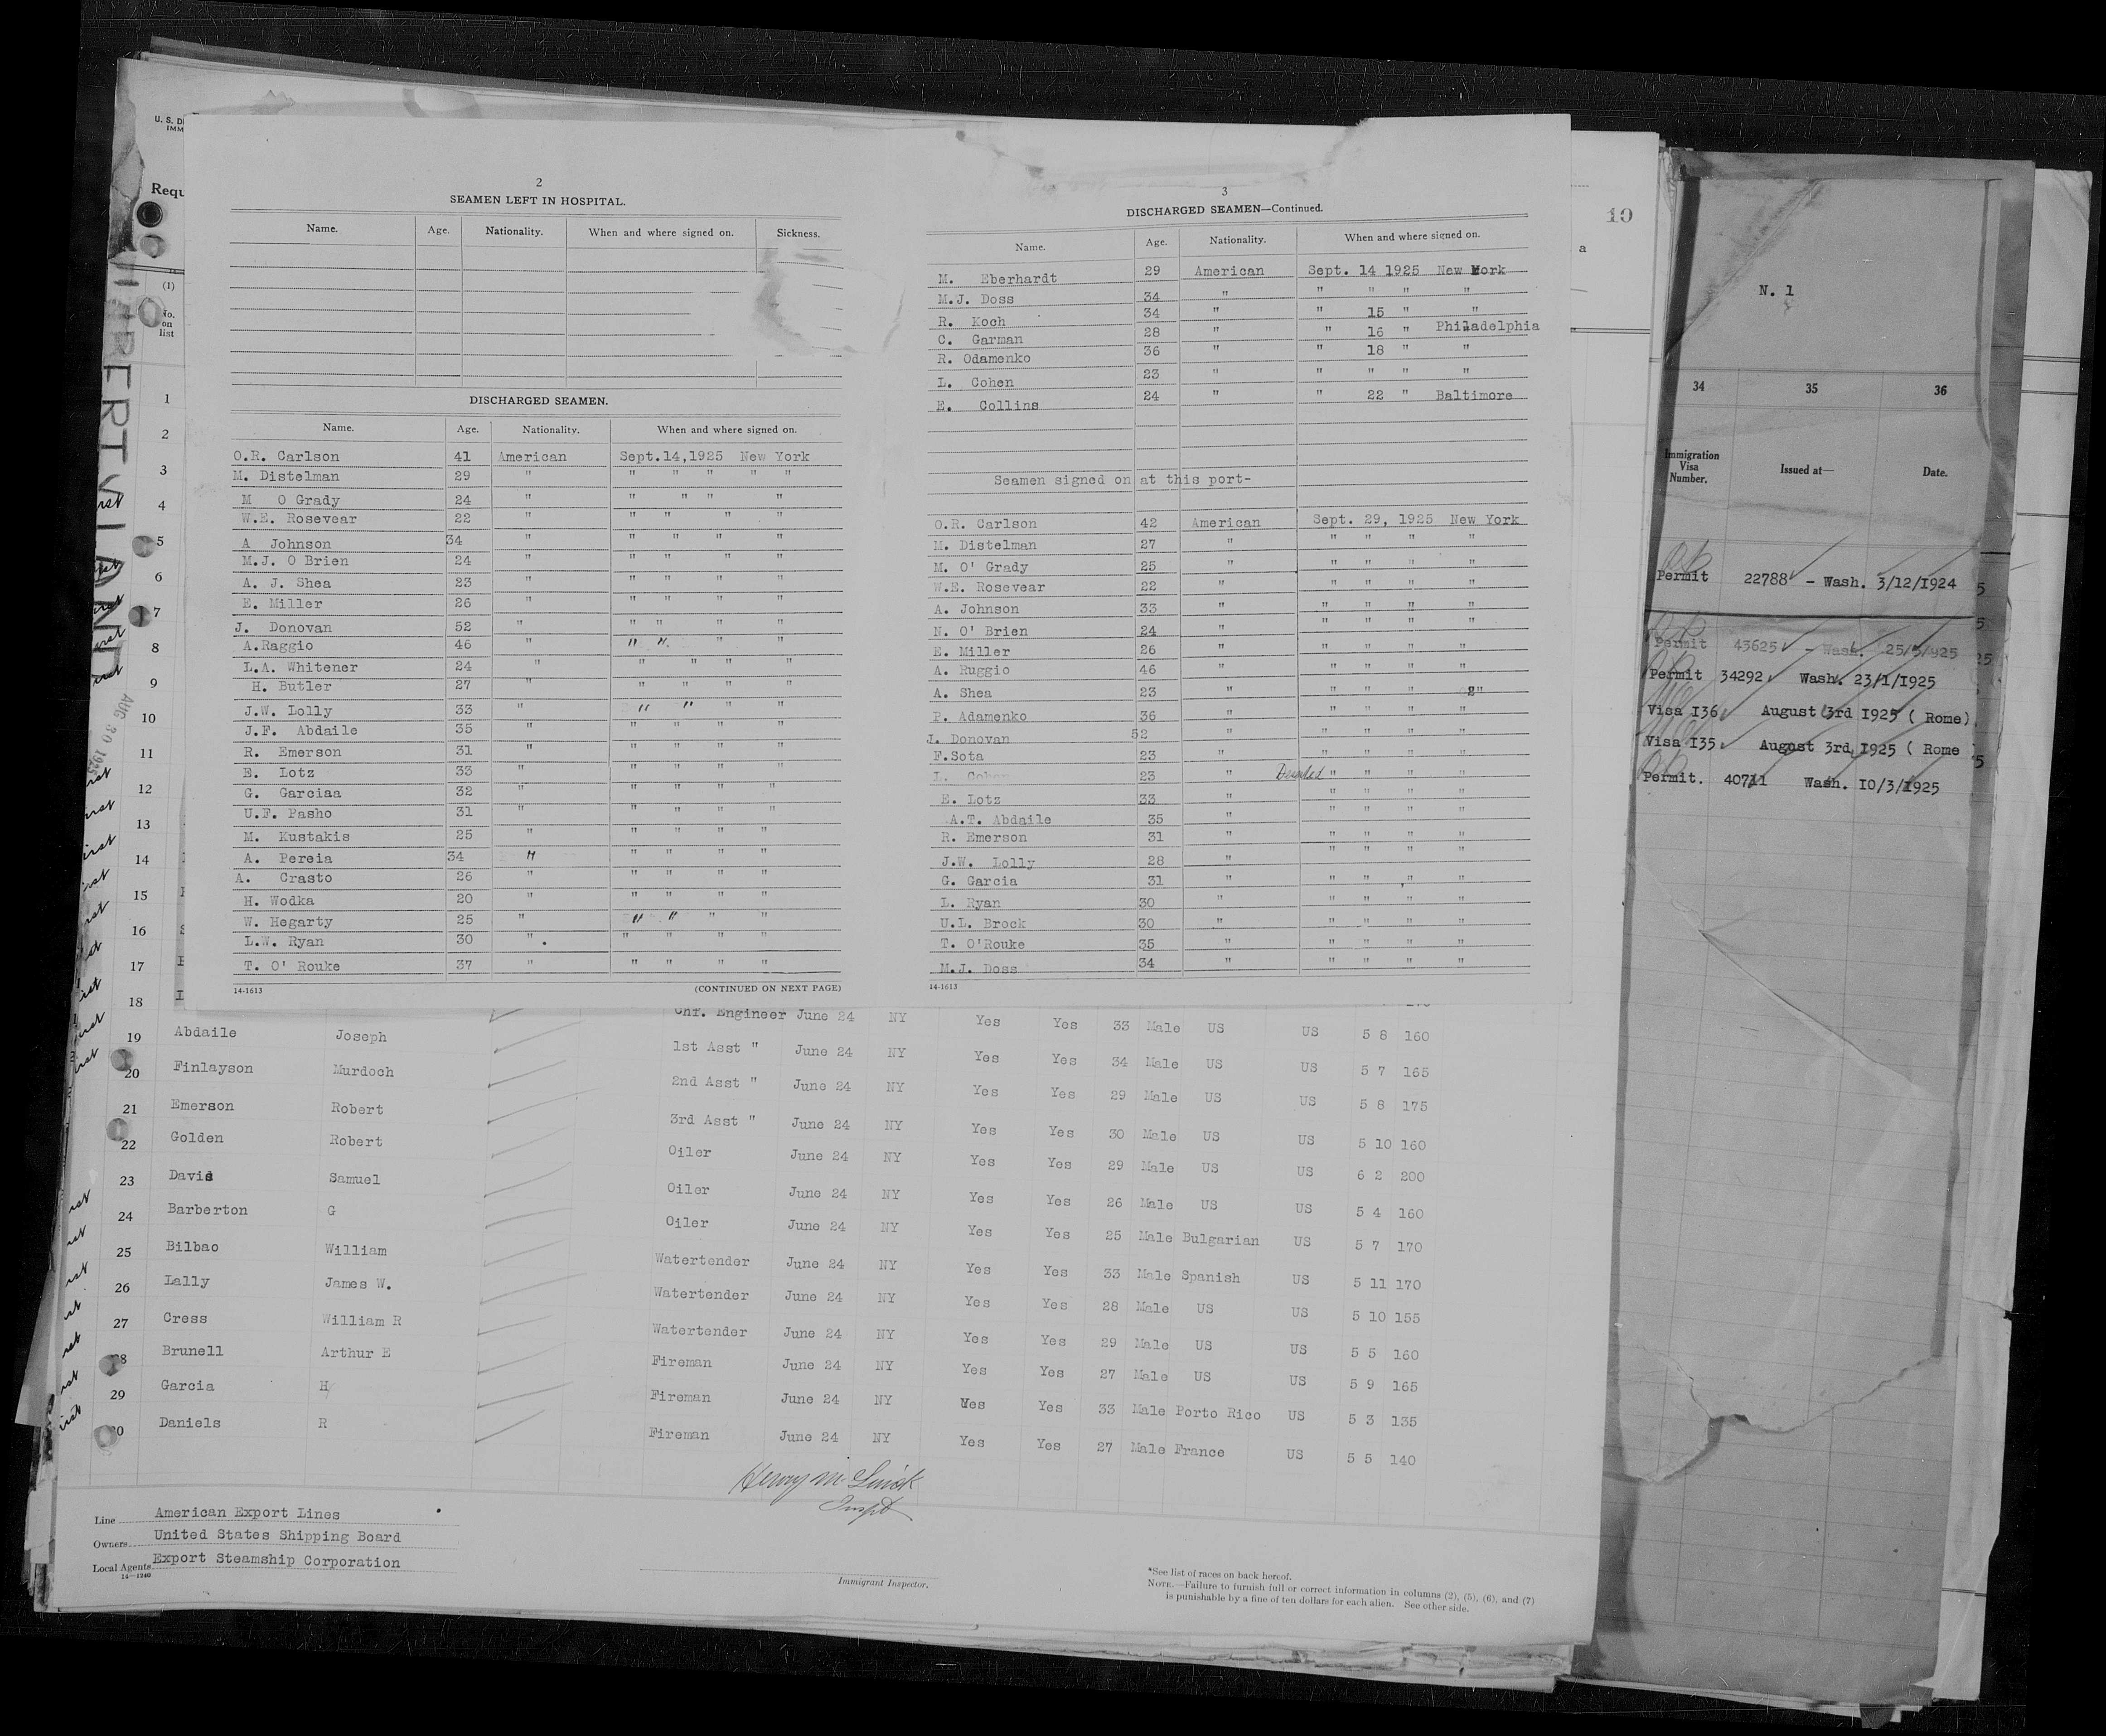 U. S. D
IMM
Requ
(1)
No.
on
list
2
SEAMEN LEFT IN HOSPITAL.
Name. Age. Nationality. When and where signed on. Sickness.
DISCHARGED SEAMEN.
Name. Age. Nationality. When and where signed on.
O.R. Carlson 41 American Sept.14,1925 New York
M. Distelman 29 " " " " " "
M O Grady 24 " " " " "
W.E. Rosevear 22 " " " " "
A Johnson 34 " " " " "
M.J. O Brien 24 " " " " "
A. J. Shea 23 " " " " "
E. Miller 26 " " " " "
J. Donovan 52 " " " " "
A.Raggio 46 " " " " "
L.A. Whitener 24 " " " " "
H. Butler 27 " " " " "
J.W. Lolly 33 " " " " "
J.F. Abdaile 35 " " " " "
R. Emerson 31 " " " " "
E. Lotz 33 " " " " "
G. Garciaa 32 " " " " "
U.F. Pasho 31 " " " " "
M. Kustakis 25 " " " " "
A. Pereia 34 " " " " "
A. Crasto 26 " " " " "
H. Wodka 20 " " " " "
W. Hegarty 25 " " " " "
L.W. Ryan 30 " " " " "
T. O' Rouke 37 " " " " "
14-1613 (CONTINUED ON NEXT PAGE)
3
DISCHARGED SEAMEN—Continued.
Name. Age. Nationality. When and where signed on.
M. Eberhardt 29 American Sept. 14 1925 New York
M.J. Doss 34 " " " " "
R. Koch 34 " " 15 " "
C. Garman 28 " " 16 " Philadelphia
R. Odamenko 36 " " 18 " "
L. Cohen 23 " " " " "
E. Collins 24 " " 22 " Baltimore
Seamen signed on at this port-
O.R. Carlson 42 American Sept. 29, 1925 New York
M. Distelman 27 " " " " "
M. O' Grady 25 " " " " "
W.E. Rosevear 22 " " " " "
A. Johnson 33 " " " " "
N. O' Brien 24 " " " " "
E. Miller 26 " " " " "
A. Ruggio 46 " " " " "
A. Shea 23 " " " " "
P. Adamenko 36 " " " " "
J. Donovan 52 " " " " "
F.Sota 23 " " " " "
L. Cohen 23 " " " " "
E. Lotz 33 " " " " "
A.T. Abdaile 35 " " " " "
R. Emerson 31 " " " " "
J.W. Lolly 28 " " " " "
G. Garcia 31 " " " " "
L. Ryan 30 " " " " "
U.L. Brock 30 " " " " "
T. O'Rouke 35 " " " " "
M.J. Doss 34 " " " " "
14-1613
10
a
N. 1
34 35 36
Immigration Visa Number. Issued at— Date.
Permit 22788 - Wash. 3/12/1924
Permit 43625 - Wash. 25/3/925
Permit 34292 Wash. 23/1/1925
Visa I36 August 3rd 1925 ( Rome)
Visa I35 August 3rd, 1925 ( Rome
Permit. 40711 Wash. 10/3/1925
AUG 30 1925
1
2
3
4
5
6
7
8
9
10
11
12
13
14
15
16
17
18 Chf. Engineer June 24 NY Yes Yes 33 Male US US 5 8 160
19 Abdaile Joseph 1st Asst " June 24 NY Yes Yes 34 Male US US 5 7 165
20 Finlayson Murdoch 2nd Asst " June 24 NY Yes Yes 29 Male US US 5 8 175
21 Emerson Robert 3rd Asst " June 24 NY Yes Yes 30 Male US US 5 10 160
22 Golden Robert Oiler June 24 NY Yes Yes 29 Male US US 6 2 200
23 Davis Samuel Oiler June 24 NY Yes Yes 26 Male US US 5 4 160
24 Barberton G Oiler June 24 NY Yes Yes 25 Male Bulgarian US 5 7 170
25 Bilbao William Watertender June 24 NY Yes Yes 33 Male Spanish US 5 11 170
26 Lally James W. Watertender June 24 NY Yes Yes 28 Male US US 5 10 155
27 Cress William R Watertender June 24 NY Yes Yes 29 Male US US 5 5 160
28 Brunell Arthur E Fireman June 24 NY Yes Yes 27 Male US US 5 9 165
29 Garcia H Fireman June 24 NY Yes Yes 33 Male Porto Rico US 5 3 135
30 Daniels R Fireman June 24 NY Yes Yes 27 Male France US 5 5 140
Line American Export Lines
Owners United States Shipping Board
Local Agents Export Steamship Corporation
14—1240
Immigrant Inspector.
*See list of races on back hereof.
NOTE.—Failure to furnish full or correct information in columns (2), (5), (6), and (7)
is punishable by a fine of ten dollars for each alien. See other side.